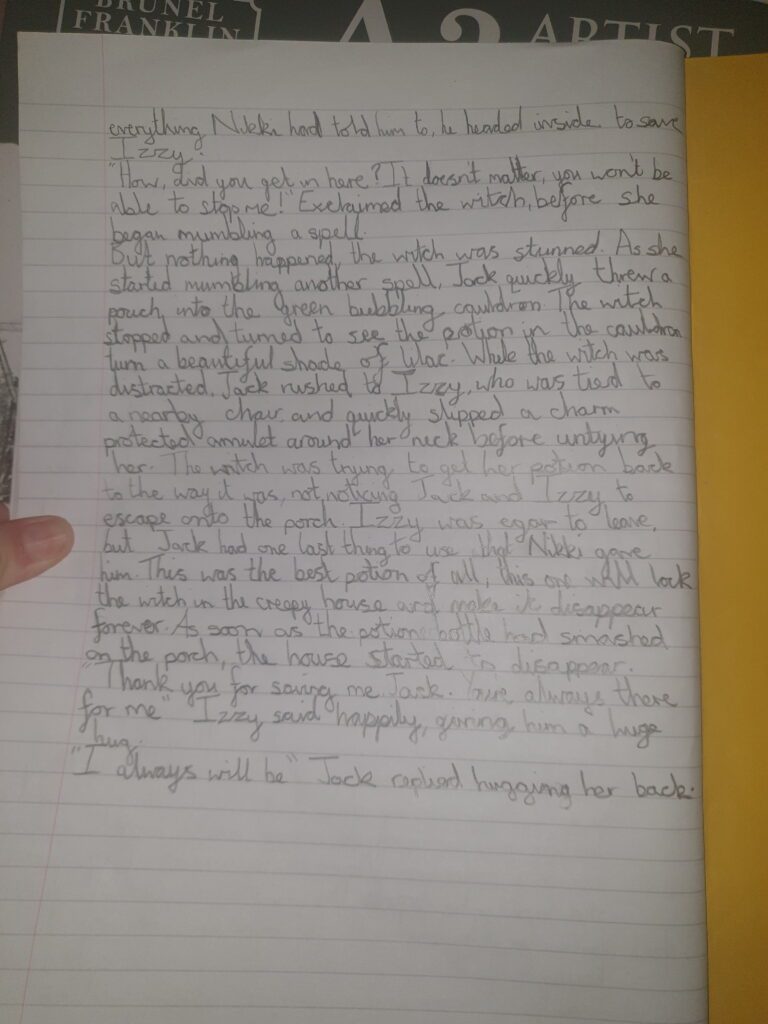 BRUNEL
FRANKLIN
A3 ARTIST
everything Nikki had told him to, he headed inside to save
Izzy.
"How, did you get in here? It doesn't matter, you won't be
able to stop me!" Exclaimed the witch, before she
began mumbling a spell.
But nothing happened, the witch was stunned. As she
started mumbling another spell, Jack quickly threw a
pouch into the green bubbling cauldron. The witch
stopped and turned to see the potion in the cauldron
turn a beautiful shade of lilac. While the witch was
distracted, Jack rushed to Izzy, who was tied to
a nearby chair, and quickly slipped a charm
protected amulet around her neck before untying
her. The witch was trying to get her potion back
to the way it was, not noticing Jack and Izzy to
escape onto the porch. Izzy was egar to leave,
but Jack had one last thing to use that Nikki gave
him. This was the best potion of all, this one will lock
the witch in the creepy house and make it disappear
forever. As soon as the potion bottle had smashed
on the porch, the house started to disappear.
"Thank you for saving me Jack. You're always there
for me" Izzy said happily, giving him a huge
hug.
"I always will be" Jack replied hugging her back.